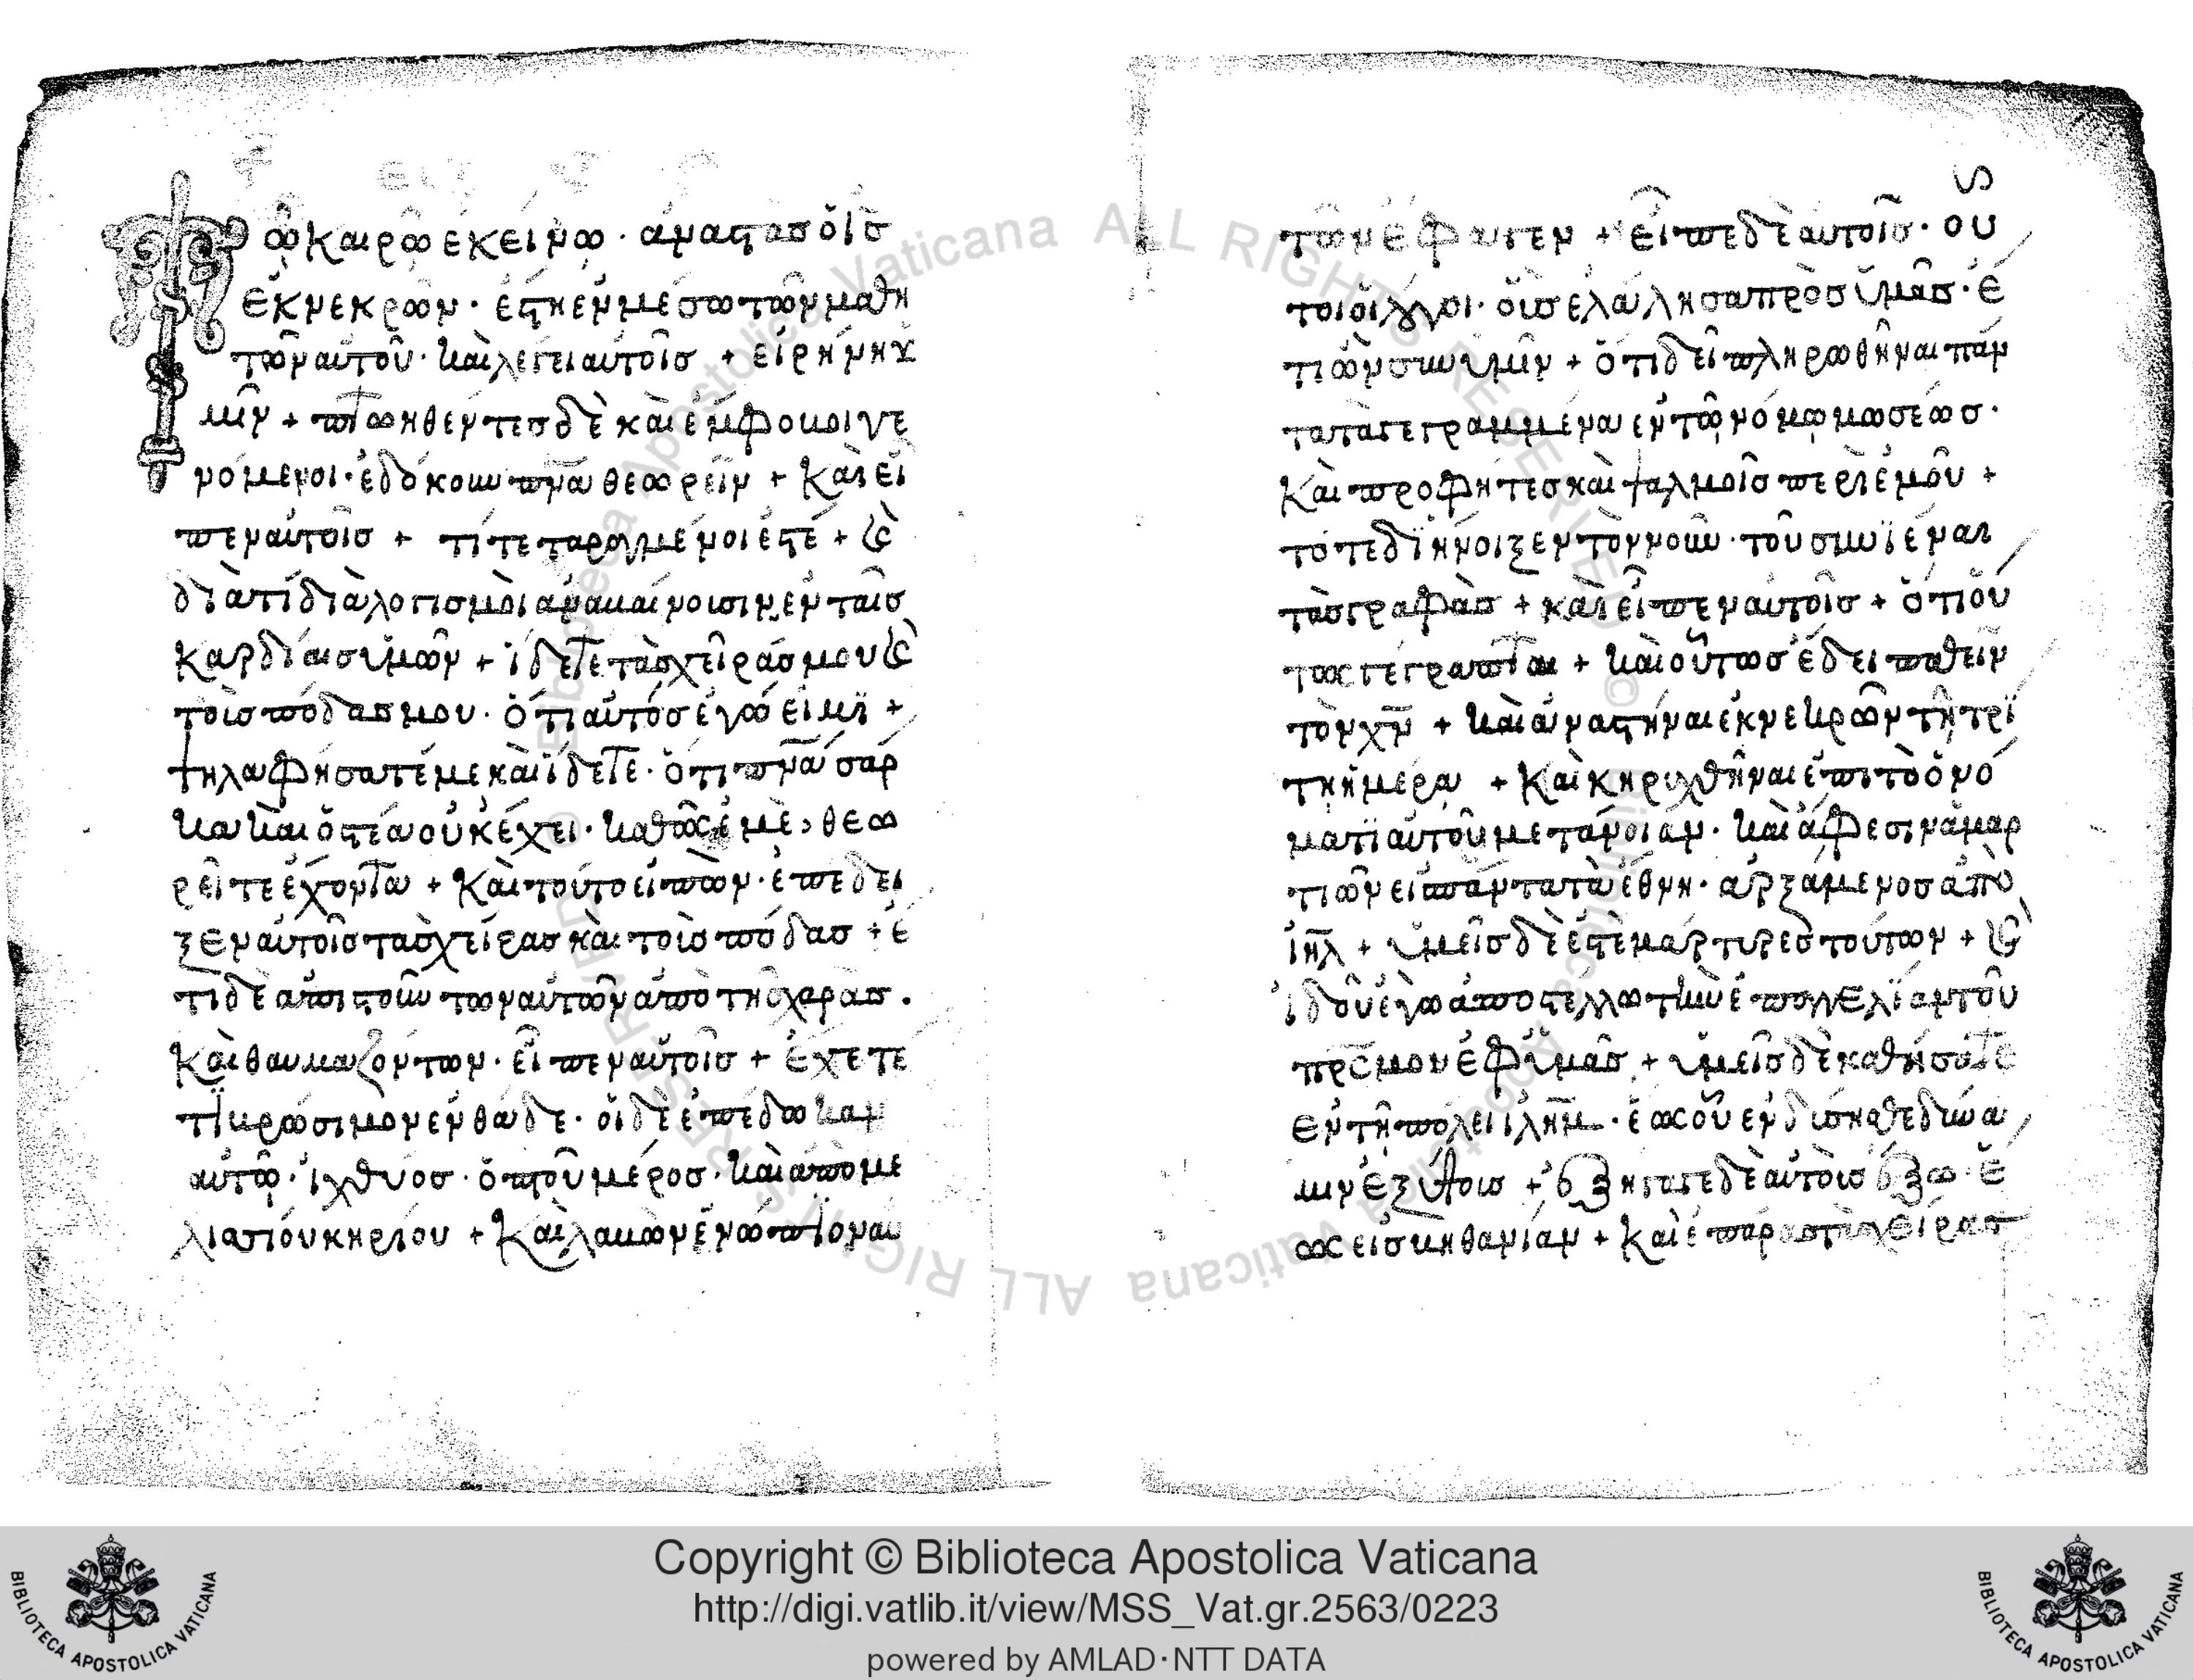 Τῶ καιρῶ ἐκείνω · ἀναστὰσ ὁ ἰσ
ἐκ νεκρῶν · ἔστη ἐν μέσω τῶν μαθη
τῶν αὐτοῦ · καὶ λέγει αὐτοῖσ + εἰρήνη ὑ
μῖν + πτωηθέντεσ δὲ καὶ ἔμφοκοι γε
νόμενοι · ἐδόκουν πνα θεωρεῖν + Καὶ εἶ
πεν αὐτοῖσ + τί τεταραγμένοι ἐστέ + κ
διὰ τί διαλογισμοὶ ἀνακαίνουσιν ἐν ταῖσ
καρδίαισ ὑμῶν + ἴδετε τὰσ χεῖράσ μου κ
τοὺσ πόδασ μου · ὅτι αὐτόσ ἐγώ εἰμϊ +
ψηλαφήσατέ με καὶ ἴδετε · ὅτι πνα σάρ
κα καὶ ὀστέα οὐκ ἔχει · καθὼσ ἐμὲ, θεω
ρεῖτε ἔχοντα + Καὶ τοῦτο εἰπὼν · ἐπέδει
ξεν αὐτοῖσ τὰσ χεῖρασ καὶ τοὺσ πόδασ + ἔ
τι δὲ ἀπιστούντων αὐτῶν ἀπὸ τῆσ χαρᾶσ ·
Καὶ θαυμαζόντων · εἶπεν αὐτοῖσ + ἔχετέ
τϊ κρώσιμον ἐνθάδε · οἱ δὲ ἐπέδωκαν
αὐτῶ · ἰχθύοσ · ὀπτοῦ μέροσ · καὶ ἀπὸ με
λισσίου κηρίου + Καὶ λακὼν ἐνώπιον αυ
ς
τῶν ἔφαγεν + εἶπε δὲ αὐτοῖσ · οὗ
τοι οἱ λόγοι · οὓσ ἐλάλησα πρὸσ ὑμᾶσ · ἔ
τι ὢν σὺν ὑμῖν + ὅτι δεῖ πληρωθῆναι πάν
τα τὰ γεγραμμένα ἐν τῶ νόμω μωσέωσ ·
Καὶ προφήτεσ καὶ ψαλμοῖσ περὶ ἐμοῦ +
τότε δϊήνοιξεν τὸν νοῦν · τοῦ συνϊέναι
τὰσ γραφάσ + καὶ εἶπεν αὐτοῖσ + ὅτι οὕ
τωσ γέγραπται + καὶ οὕτωσ ἔδει παθεῖν
τὸν χν + καὶ ἀναστῆναι ἐκ νεκρῶν τῆ τρί
τη ἡμέρα + Καὶ κηρυχθῆναι ἐπὶ τὸ ὀνό
ματϊ αὐτοῦ μετάνοιαν · καὶ ἄφεσιν ἁμαρ
τιῶν εἰσ πάντα τὰ ἔθνη · ἀρξάμενοσ ἀπὸ
ἰηλ + ὑμεῖσ δὲ ἐστὲ μάρτυρεσ τούτων + κ
ἰδοὺ ἐγὼ ἀποστέλλω τὴν ἐπαγγελϊαν τοῦ
πρσ μου ἐφ ὑμᾶσ + ὑμεῖσ δὲ καθήσατε
ἐν τῆ πόλει ιλημ · ἕωσ οὗ ἐνδύσησθε δύνα
μιν ἐξ ὕψουσ + ἐξήγαγε δὲ αὐτοὺσ ἔξω · ἕ
ωσ εἰσ κηθανίαν + Καὶ ἐπάρασ τὰσ χεῖρασ
Copyright © Biblioteca Apostolica Vaticana
http://digi.vatlib.it/view/MSS_Vat.gr.2563/0223
powered by AMLAD·NTT DATA
BIBLIOTECA APOSTOLICA VATICANA
BIBLIOTECA APOSTOLICA VATICANA